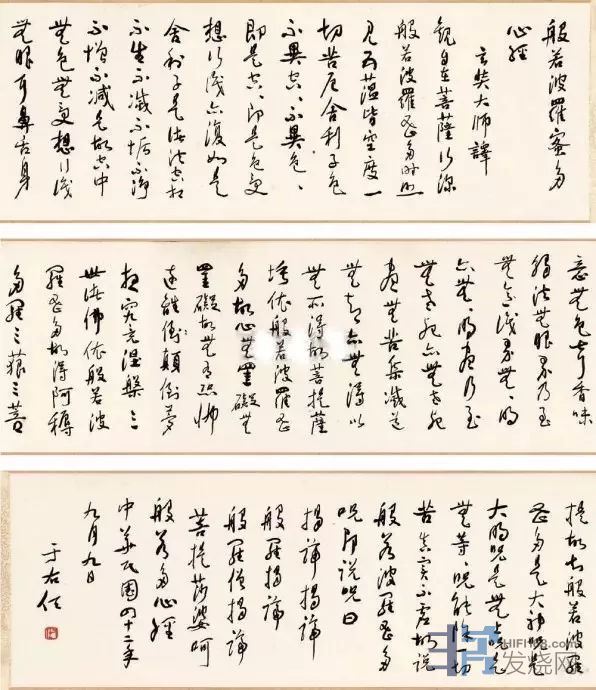 般若波羅蜜多
心經
玄奘大師譯
觀自在菩薩行深
般若波羅蜜多時照
見五蘊皆空度一
切苦厄舍利子色
不異空、不異色、
即是空、即是色受
想行識亦復如是
舍利子是諸法空相
不生不滅不垢不淨
不增不減是故空中
無色無受想行識
無眼耳鼻舌身
意無色聲香味
觸法無眼界乃至
無意識界無、明
亦無、明盡乃至
無老死亦無老死
盡無苦集滅道
無智亦無得以
無所得故菩提薩
埵依般若波羅蜜
多故心無罣礙無
罣礙故無有恐怖
遠離倒顛倒夢
想究竟涅槃三
世諸佛依般若波
羅蜜多故得阿耨
多羅三藐三菩
提故知般若波羅
蜜多是大神咒是
大明咒是無上咒是
無等、咒能除一切
苦真實不虛故說
般若波羅蜜多
咒即說咒曰
揭諦揭諦
般羅揭諦
般羅僧揭諦
菩提莎婆呵
般若多心經
中華民國四十二年
九月九日
于右任
HIFI168.com
发烧网